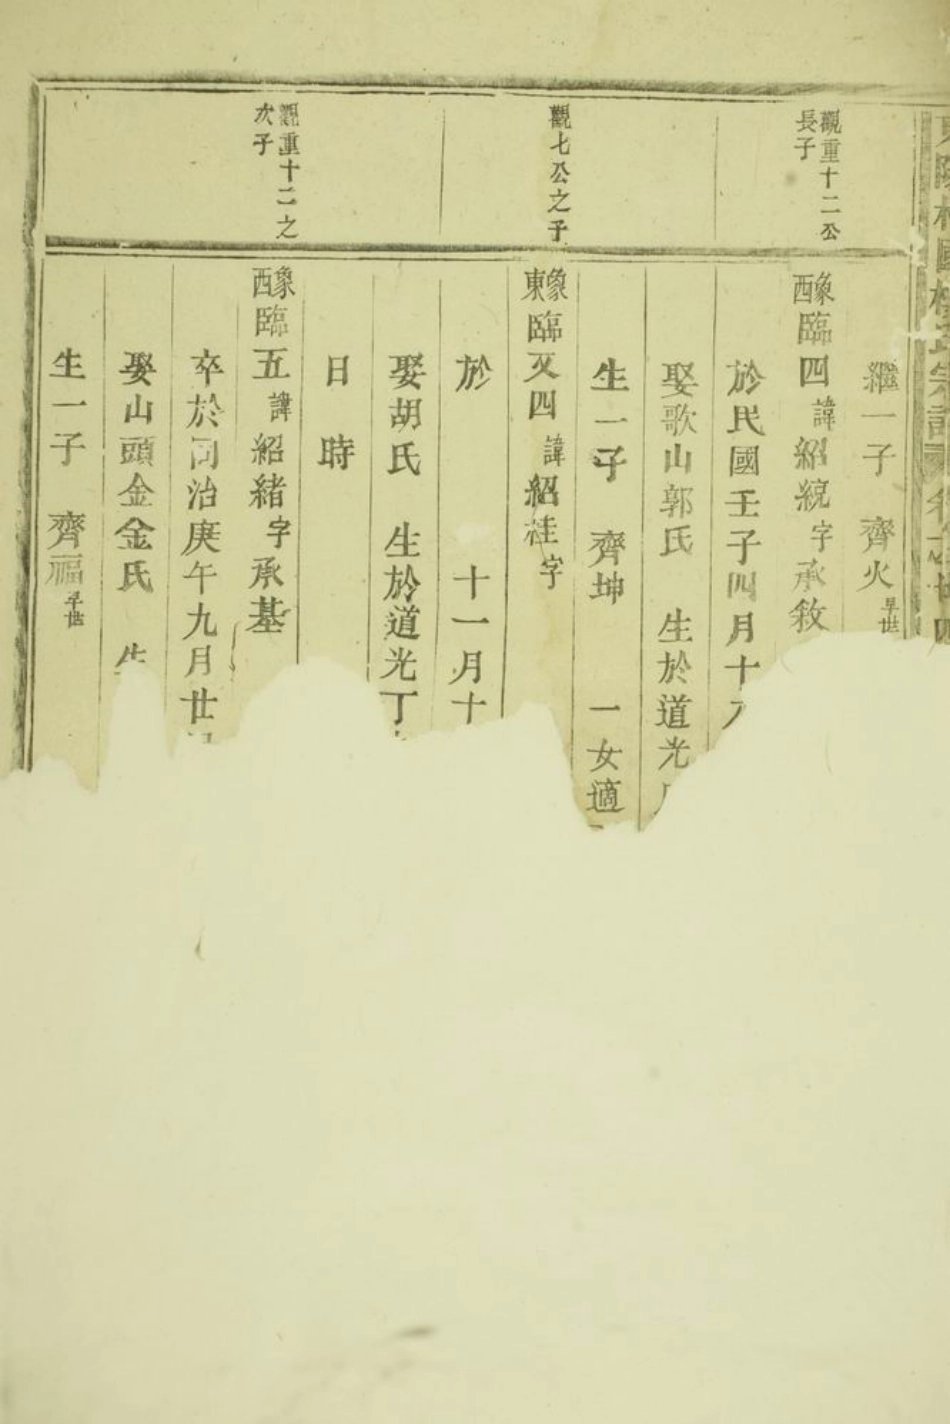 繼一子 齊火早世
觀重十二公
長子
象西臨四諱紹統字承敘
於民國壬子四月十
娶歌山郭氏 生於道光
生一子 齊坤 一女適
觀七公之子
象東臨又四諱紹桂字
於 十一月十
娶胡氏 生於道光丁
日 時
觀重十二之
次子
象西臨五諱紹緒字承基
卒於同治庚午九月廿
娶山頭金金氏 生
生一子 齊福早世